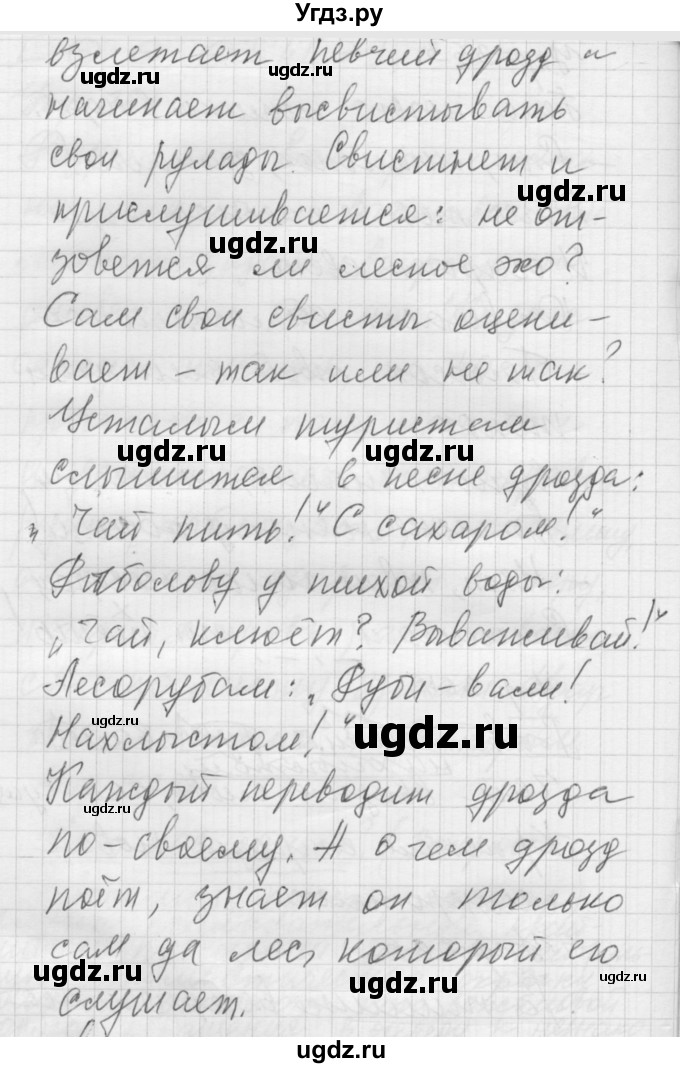 Угдз.ру
взлетает певчий дрозд и
ugdz.ru ugdz.ru
начинает высвистывать
свои рулады. Свистнет и
ugdz.ru
прислушивается: не от-
ugdz.ru
зовется ли лесное эхо?
Сам свои свисты оцени-
ugdz.ru
вает – так или не так?
Усталым туристам
ugdz.ru ugdz.ru
слышится в песне дрозда:
„Чай пить!“ „С сахаром!“
Рыболову у тихой воды:
„Чай, клюёт? Вываживай!“
Лесорубам: „Руби – вали!
ugdz.ru ugdz.ru
Нахлыстом!“
Каждый переводит дрозда
ugdz.ru
по-своему. А о чем дрозд
ugdz.ru
поёт, знает он только
сам да лес, который его
ugdz.ru ugdz.ru ugdz.ru
слушает.
ugdz.ru